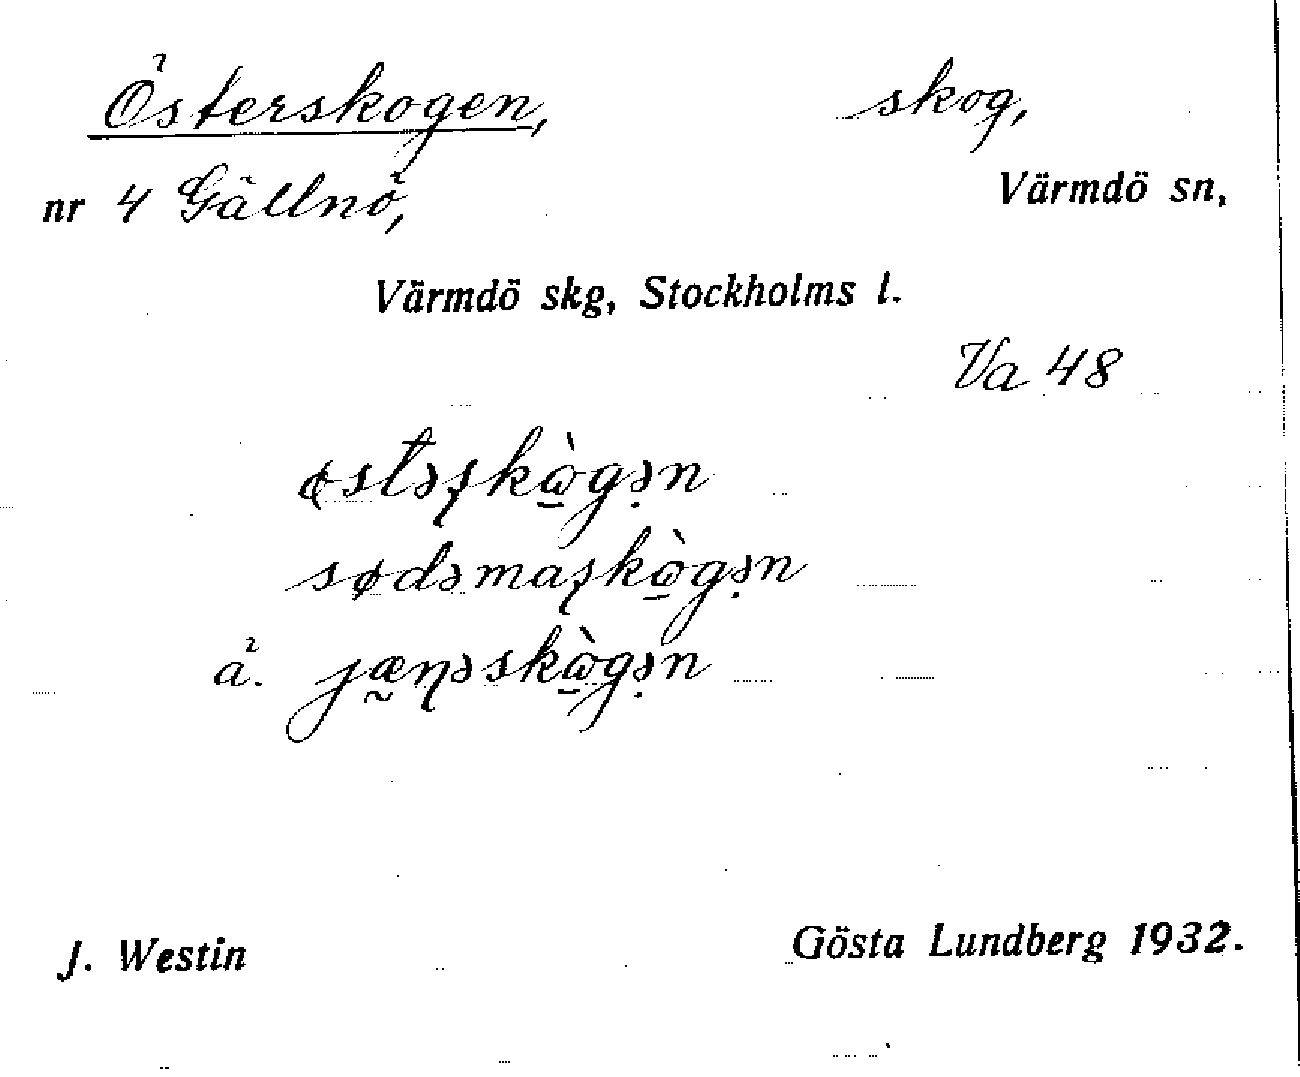 Österskogen, skog,
nr 4 Gällnö, Värmdö sn,
Värmdö skg, Stockholms l.
Va 48
østəʂkὼ̱gə̣n
sødəmaʂkὼ̱gə̣n
å. jæ̰ɳəskὼ̱gə̣n
J. Westin Gösta Lundberg 1932.